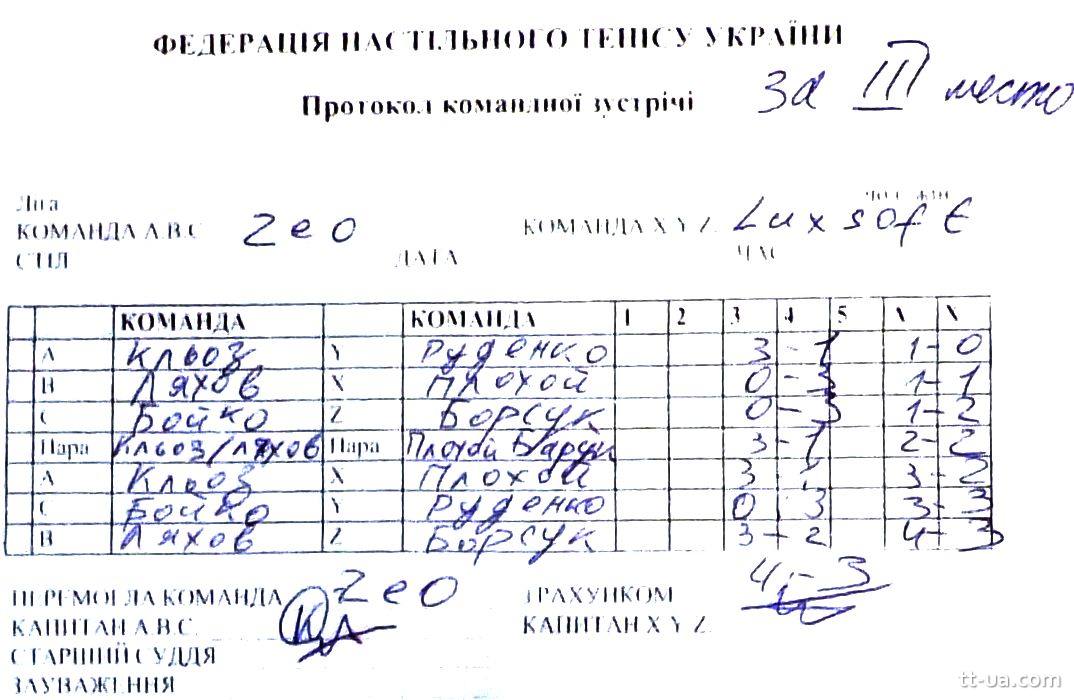 ФЕДЕРАЦІЯ НАСТІЛЬНОГО ТЕНІСУ УКРАЇНИ
Протокол командної зустрічі
За III место
КОМАНДА А.В.С 2ео КОМАНДА X Y Z Luxsoft
СТІЛ ДАТА ЧАС
КОМАНДА КОМАНДА 1 2 3 4 5
А Кльоз Y Руденко 3-1 1-0
В Ляхов X Плохой 0-3 1-1
С Бойко Z Борсук 0-3 1-2
Пара Кльоз/Ляхов Пара Плохой 3-1 2-2
А Кльоз X Плохой 3 3-2
С Бойко Y Руденко 0 3 3-3
В Ляхов Z Борсук 3-2 4-3
ПЕРЕМОГЛА КОМАНДА 2ео З РАХУНКОМ 4-3
КАПИТАН А.В.С. КАПИТАН X Y Z
СТАРШИЙ СУДДЯ
ЗАУВАЖЕННЯ
tt-ua.com